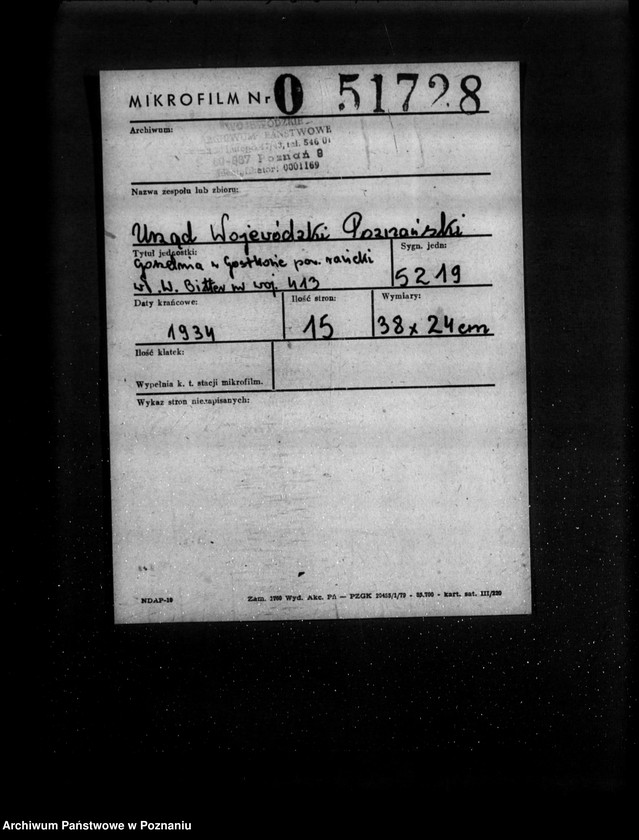 MIKROFILM Nr O 51728
Archiwum:
WOJEWÓDZKIE
ARCHIWUM PAŃSTWOWE
tel. 546 01
60-967 Poznań 9
0001169
Nazwa zespołu lub zbioru:
Urząd Wojewódzki Poznański
Tytuł jednostki:
Sygn. jedn:
Gorzelnia w Gostkowie pow. rawicki
wł. W. Bitter nr woj. 413
5219
Daty krańcowe:
Ilość stron:
Wymiary:
1934
15
38 x 24 cm
Ilość klatek:
Wypełnia k. t. stacji mikrofilm.
Wykaz stron niezapisanych:
NDAP-19
Zam. Wyd. Akc. PA — PZGK - kart. sat. III/220
Archiwum Państwowe w Poznaniu